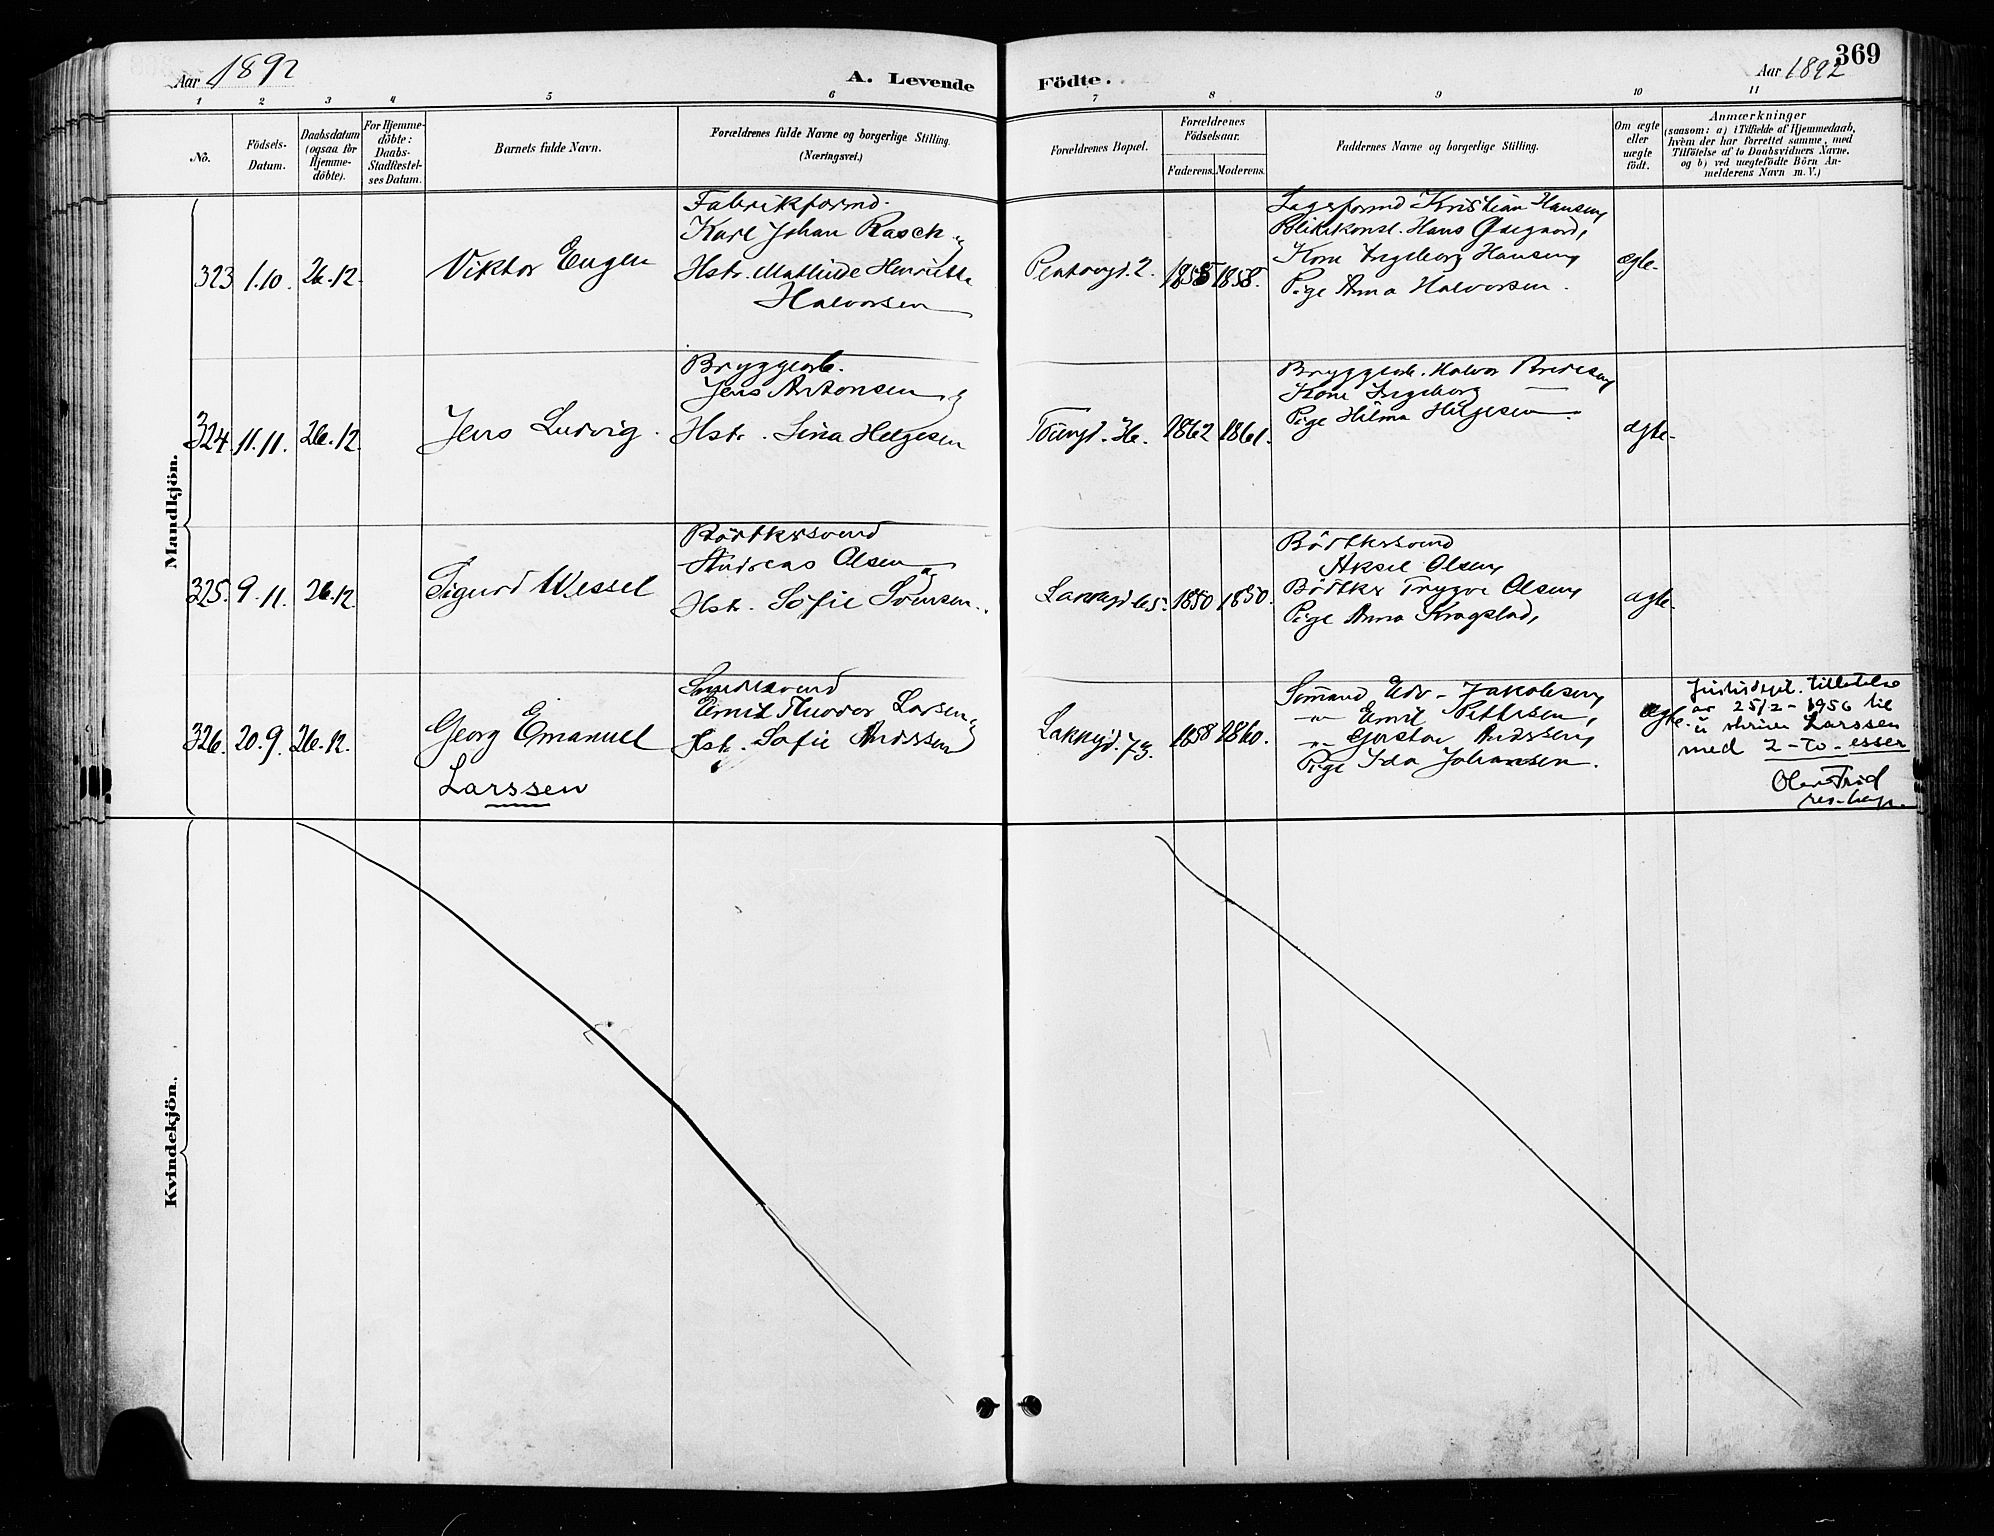 Aar 1892
A. Levende
Födte.
Aar 1892
369
1 2 3 4 5 6 7 8 9 10 11
No.
Födsels-
Datum.
Daabsdatum
(ogsaa for
Hjemme-
döbte).
For Hjemme-
döbte:
Daabs-
Stadfæstel-
ses Datum.
Barnets fulde Navn.
Forældrenes fulde Navne og borgerlige Stilling.
(Næringsvei.)
Forældrenes Bopæl.
Forældrenes
Födselsaar.
Faderens.
Moderens.
Faddernes Navne og borgerlige Stilling.
Om ægte
eller
uægte
födt.
Anmærkninger
(saasom: a) i Tilfælde af Hjemmedaab,
hvem der har forrettet samme, med
Tilföielse af to Daabsvidners Navne.
og b) ved uægtefödte Börn An-
melderens Navn m. V.)
Mandkjön.
323 1.10. 26.12. Viktor Eugen
Fabrikformd.
Karl Johan Rasch og
Hstr. Mathilde Henriette
Halvorsen
2. 1855 1858.
Kristian Hansen,
Hans
Kone Ingeborg Hansen,
Pige Anna Halvorsen.
ægte.
324. 11.11. 26.12. Jens Ludvig.
Bryggearb.
Jens Antonsen og
Hstr. Lina Helgesen
1862 1861.
Bryggearb. Halvor
Kone Ingeborg
Pige Hilma Helgesen.
ægte.
325. 9.11. 26.12 Sigurd Wessel
Bödtkersvend
Andreas Olsen og
Hstr. Sofie
65. 1850 1850.
Bödtkersvend
Aksel Olsen,
Bödtker Trygve Olsen,
Pige Anna Kragstad,
ægte.
326. 20.9. 26.12. Georg Emanuel
Larssen
Smedesvend
Emil Theodor Larsen og
Hstr. Sofie Anderssen
Lakkegd. 73. 1858 1860.
Sömand Edv. Jakobsen,
-"- Emil Pettersen,
-"- Gustav Anderssen,
Pige Ida Johansen.
ægte.
Justisdept. tillatelse
av 25/2-1956 til
å skrive Larssen
med 2-to-esser
res. kap.
Kvindekjön.